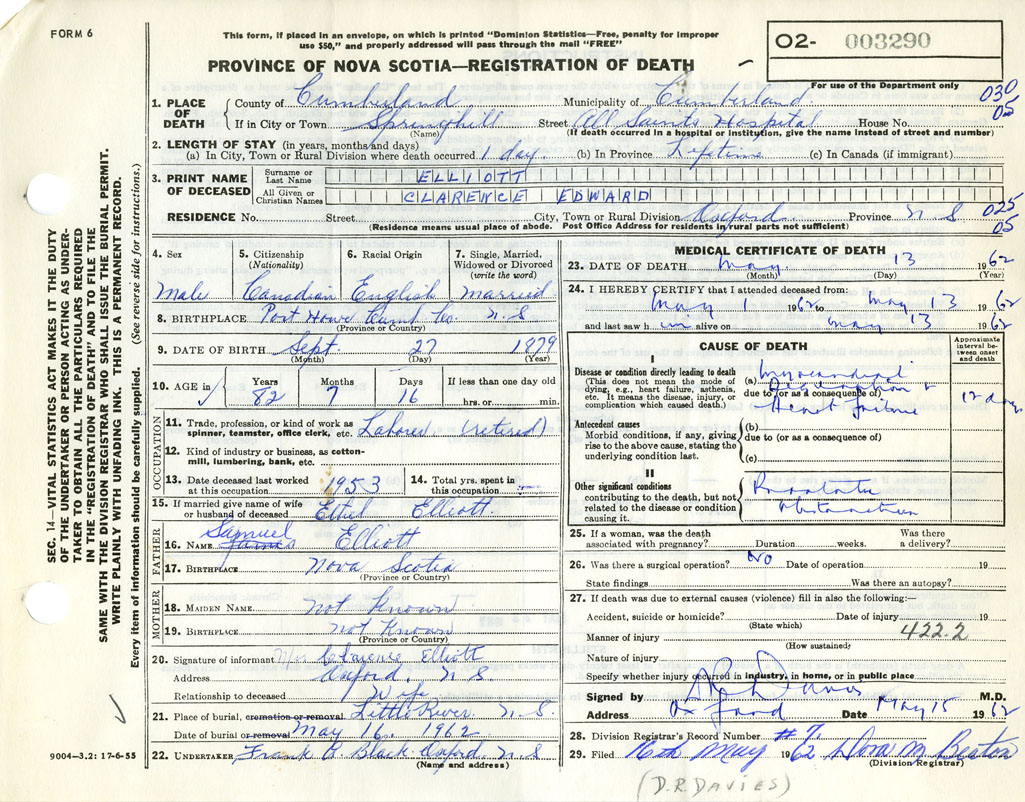 FORM 6
This form, if placed in an envelope, on which is printed "Dominion Statistics—Free, penalty for improper
use $50," and properly addressed will pass through the mail "FREE"
O2- 003290
PROVINCE OF NOVA SCOTIA—REGISTRATION OF DEATH
For use of the Department only
030
05
1. PLACE OF DEATH
County of Cumberland Municipality of Cumberland
If in City or Town Springhill Street All Saints Hospital House No.
(Name) (If death occurred in a hospital or institution, give the name instead of street and number)
2. LENGTH OF STAY (in years, months and days)
(a) In City, Town or Rural Division where death occurred 1 day. (b) In Province Lifetime (c) In Canada (if immigrant)
3. PRINT NAME OF DECEASED
Surname or Last Name ELLIOTT
All Given or Christian Names CLARENCE EDWARD
RESIDENCE No. Street City, Town or Rural Division Oxford Province N.S
025
05
(Residence means usual place of abode. Post Office Address for residents in rural parts not sufficient)
SEC. 14—VITAL STATISTICS ACT MAKES IT THE DUTY
OF THE UNDERTAKER OR PERSON ACTING AS UNDER-
TAKER TO OBTAIN ALL THE PARTICULARS REQUIRED
IN THE "REGISTRATION OF DEATH" AND TO FILE THE
SAME WITH THE DIVISION REGISTRAR WHO SHALL ISSUE THE BURIAL PERMIT.
WRITE PLAINLY WITH UNFADING INK. THIS IS A PERMANENT RECORD.
Every item of information should be carefully supplied. (See reverse side for instructions.)
4. Sex 5. Citizenship (Nationality) 6. Racial Origin 7. Single, Married, Widowed or Divorced (write the word)
Male Canadian English Married
8. BIRTHPLACE Port Howe Cumb Co. N.S
(Province or Country)
9. DATE OF BIRTH Sept. 27 1879
(Month) (Day) (Year)
10. AGE in Years Months Days If less than one day old
82 7 16 hrs. or min.
OCCUPATION
11. Trade, profession, or kind of work as
spinner, teamster, office clerk, etc. Laborer (retired)
12. Kind of industry or business, as cotton-
mill, lumbering, bank, etc.
13. Date deceased last worked at this occupation 1953 14. Total yrs. spent in this occupation
15. If married give name of wife
or husband of deceased Ethel Elliott.
FATHER
Samuel
16. NAME James Elliott
17. BIRTHPLACE Nova Scotia
(Province or Country)
MOTHER
18. MAIDEN NAME Not Known
19. BIRTHPLACE Not Known
(Province or Country)
20. Signature of informant Mrs Clarence Elliott
Address Oxford, N.S.
Relationship to deceased Wife
21. Place of burial, cremation or removal Little River N.S
Date of burial or removal May 16, 1962
22. UNDERTAKER Frank B. Black Oxford N.S
(Name and address)
9004—3.2: 17-6-55
MEDICAL CERTIFICATE OF DEATH
23. DATE OF DEATH May 13 1962
(Month) (Day) (Year)
24. I HEREBY CERTIFY that I attended deceased from:
May 1 1962 to May 13 1962
and last saw him alive on May 13 1962
CAUSE OF DEATH
Approximate interval between onset and death
I
Disease or condition directly leading to death
(This does not mean the mode of dying, e.g., heart failure, asthenia, etc. It means the disease, injury, or complication which caused death.)
(a) Myocardial
due to (or as a consequence of)
Heart failure
12 days
Antecedent causes
Morbid conditions, if any, giving rise to the above cause, stating the underlying condition last.
(b)
due to (or as a consequence of)
(c)
II
Other significant conditions
contributing to the death, but not related to the disease or condition causing it.
Prostatic
obstruction
25. If a woman, was the death
associated with pregnancy? Duration weeks. Was there a delivery?
26. Was there a surgical operation? No Date of operation 19
State findings Was there an autopsy?
27. If death was due to external causes (violence) fill in also the following:—
Accident, suicide or homicide? Date of injury 19
(State which)
422.2
Manner of injury
(How sustained)
Nature of injury
Specify whether injury occurred in industry, in home, or in public place
Signed by Davies M.D.
Address Oxford Date May 15 1962
28. Division Registrar's Record Number #7
29. Filed 16th May 1962 Dora M. Beaton
(Division Registrar)
(D.R. DAVIES)